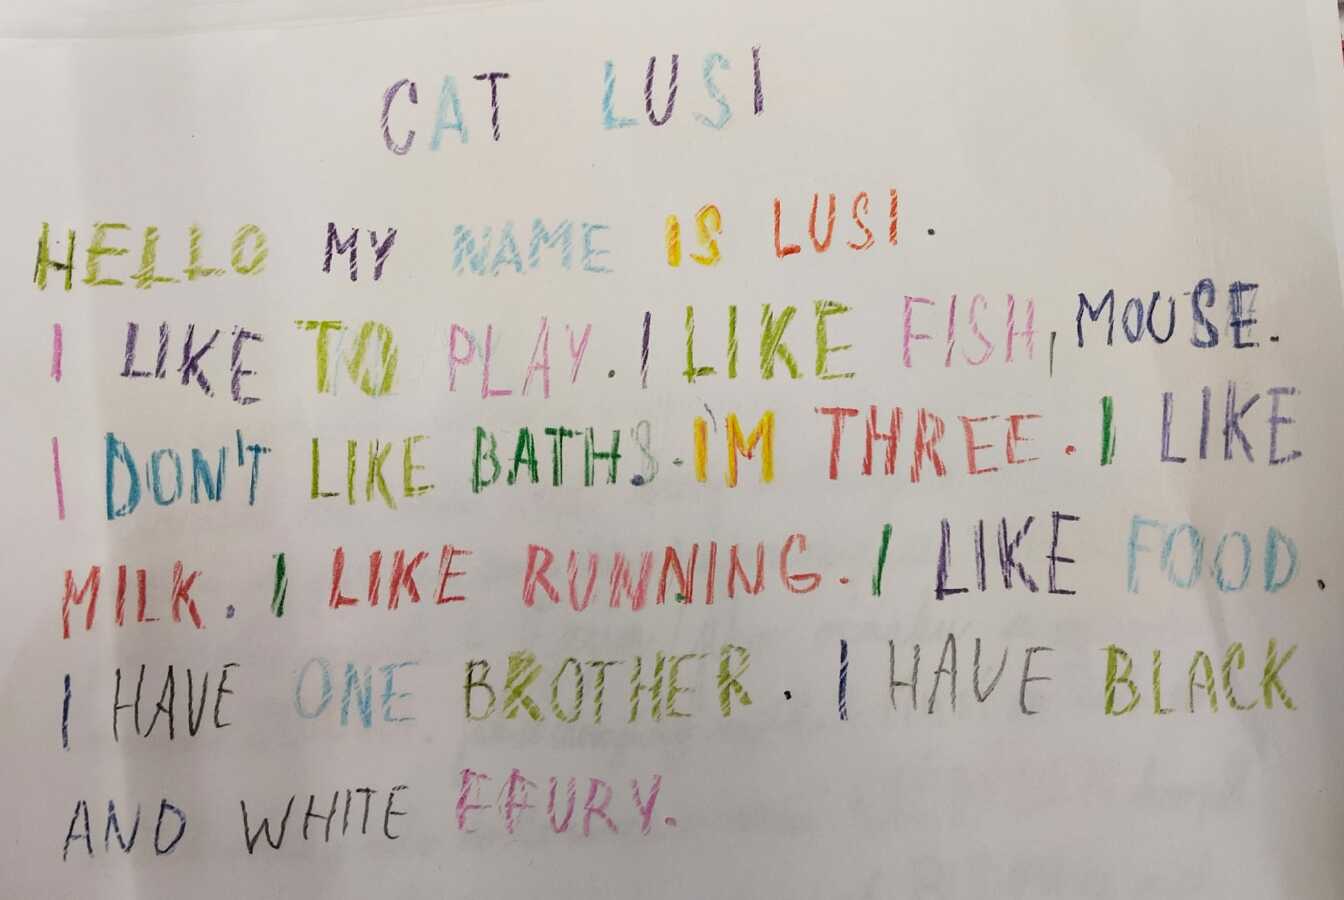 CAT LUSI
HELLO MY NAME IS LUSI.
I LIKE TO PLAY. I LIKE FISH, MOUSE.
I DON'T LIKE BATHS. I'M THREE. I LIKE
MILK. I LIKE RUNNING. I LIKE FOOD.
I HAVE ONE BROTHER. I HAVE BLACK
AND WHITE FFURY.